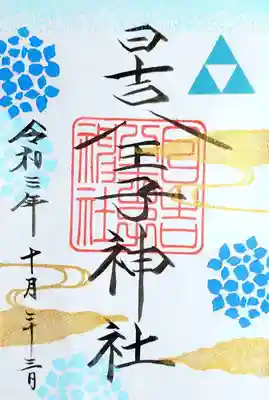 日吉八王子神社
日吉
八王子
神社
令和三年
十月二十三日